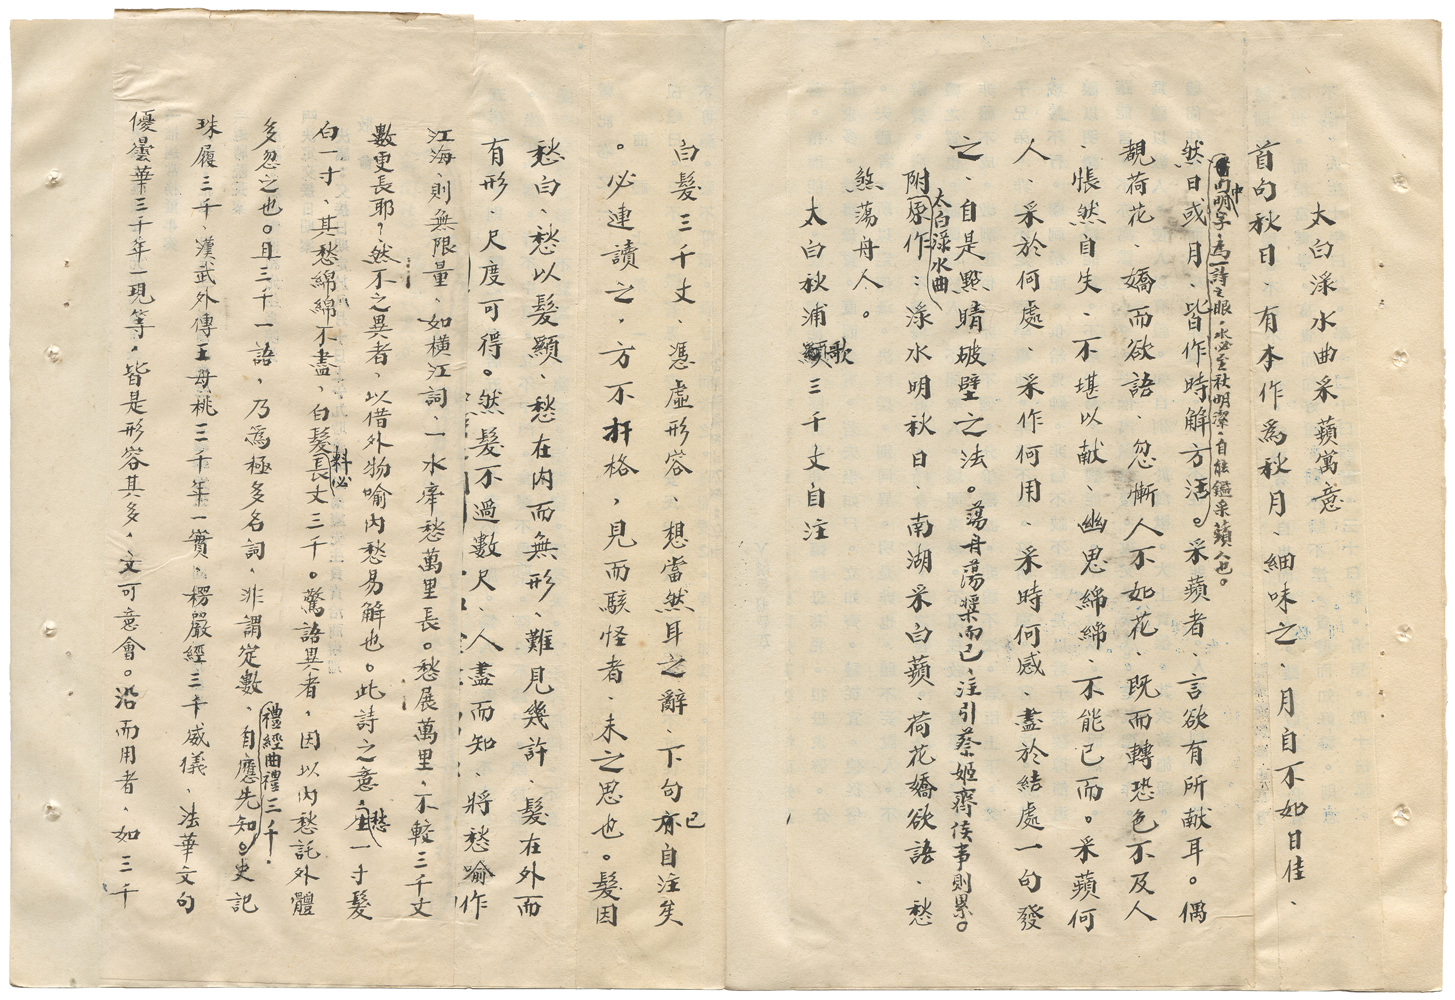 太白淥水曲采蘋寓意
首句秋日、有本作為秋月、細味之、月自不如日佳、
中的明字、為一詩之眼、水必至秋明潔、自能鑑采蘋人也。
然日或月、皆作時解方活。采蘋者、言欲有所献耳。偶
覩荷花、嬌而欲語、忽慚人不如花、既而轉恐色不及人
、悵然自失、不堪以献、幽思綿綿、不能已而。采蘋何
人、采於何處、采作何用、采時何感、盡於結處一句發
之、自是點睛破壁之法。蕩舟蕩槳而已、注引蔡姬齊侯事則累。
太白淥水曲
附原作：淥水明秋日、南湖采白蘋、荷花嬌欲語、愁
煞蕩舟人。
太白秋浦歌三千丈自注
白髮三千丈、憑虛形容、想當然耳之辭、下句已自注矣
。必連讀之，方不扞格，見而駭怪者、未之思也。髮因
愁白、愁以髮顯、愁在内而無形、難見幾許、髮在外而
有形、尺度可得。然髮不過數尺、人盡而知、將愁喻作
江海、則無限量、如橫江詞、一水牽愁萬里長。愁展萬里、不較三千丈
數更長耶？然不之異者、以借外物喻内愁易解也。此詩之意、愁一寸髮
白一寸、其愁綿綿不盡、白髮料必長丈三千。驚語異者、因以内愁託外體
多忽之也。且三千一語，乃為極多名詞、非謂定數、自應先知。史記
禮經曲禮三千.
珠履三千、漢武外傳王母桃三千年一實、楞嚴經三千威儀、法華文句
優曇華三千年一現等，皆是形容其多，文可意會。沿而用者、如三千